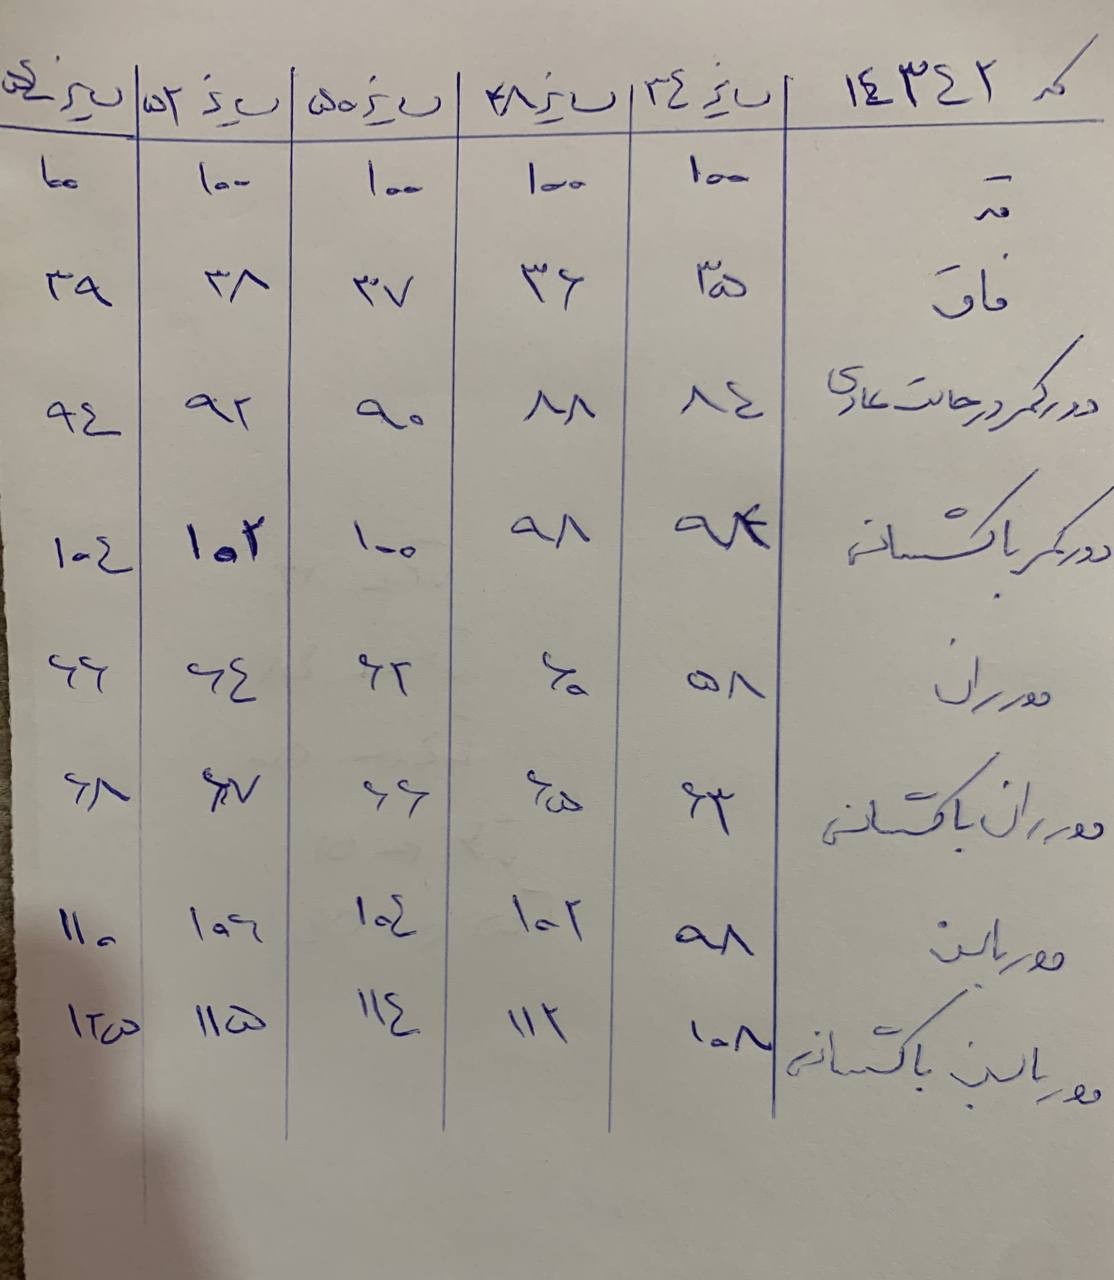 کد ۱٤۳٤۲ سایز ۳٤ سایز ۴۸ سایز ۵۰ سایز ۵۲ سایز ۵٤
قد ۱۰۰ ۱۰۰ ۱۰۰ ۱۰۰ ۱۰۰
فاق ۳۵ ۳۶ ۳۷ ۳۸ ۳۹
دور کمر در حالت عادی ۸٤ ۸۸ ۹۰ ۹۲ ۹٤
دور کمر با کشسانی ۹۴ ۹۸ ۱۰۰ ۱۰۲ ۱۰٤
دور ران ۵۸ ۶۰ ۶۲ ۶٤ ۶۶
دور ران با کشسانی ۶۳ ۶۵ ۶۶ ۶۷ ۶۸
دور باسن ۹۸ ۱۰۲ ۱۰٤ ۱۰۶ ۱۱۰
دور باسن با کشسانی ۱۰۸ ۱۱۲ ۱۱٤ ۱۱۵ ۱۲۵